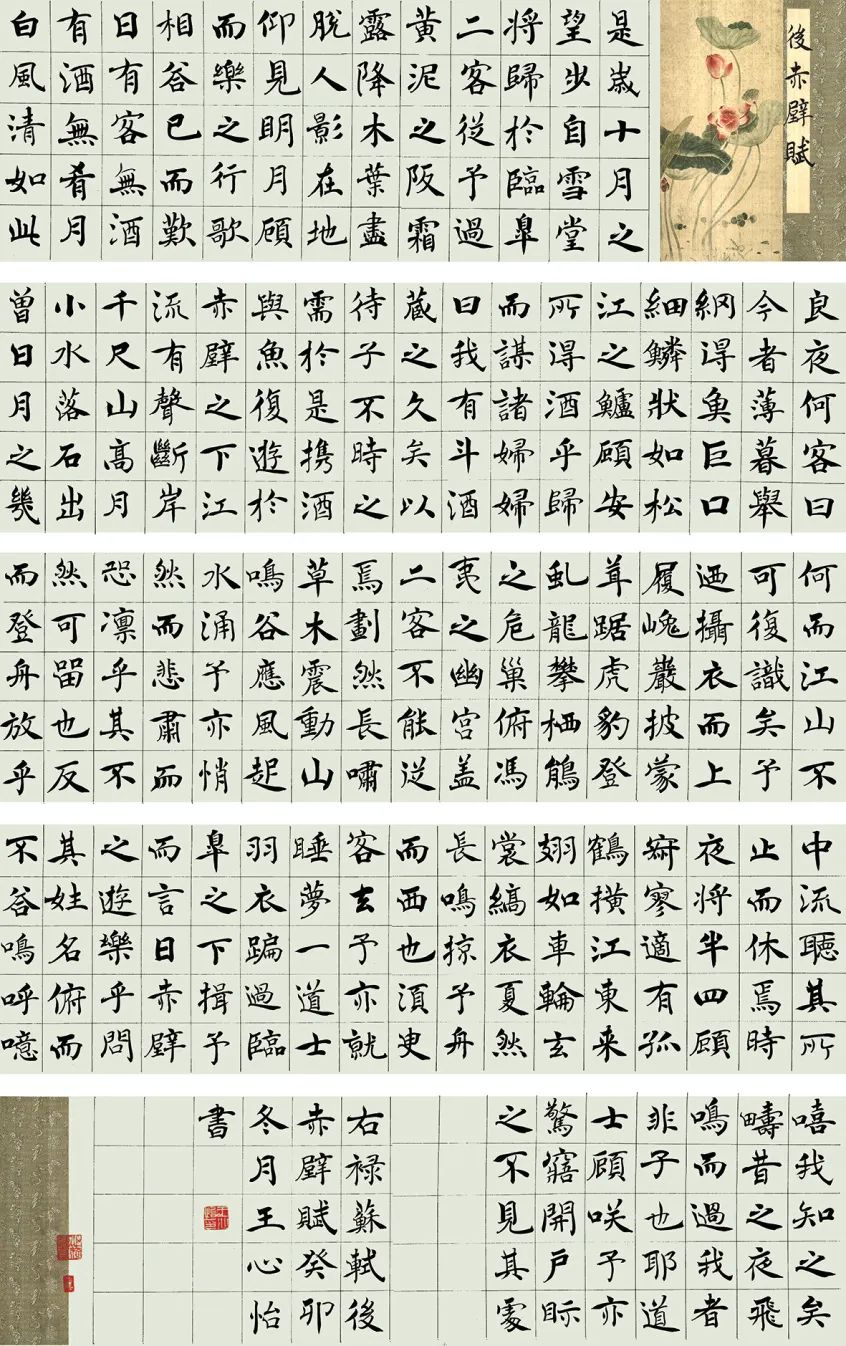 後赤壁賦
是歲十月之
望步自雪堂
將歸於臨皐
二客從予過
黃泥之阪霜
露降木葉盡
脫人影在地
仰見明月顧
而樂之行歌
相答已而歎
曰有客無酒
有酒無肴月
白風清如此
良夜何客曰
今者薄暮舉
網得魚巨口
細鱗狀如松
江之鱸顧安
所得酒乎歸
而謀諸婦婦
曰我有斗酒
藏之久矣以
待子不時之
需於是携酒
與魚復遊於
赤壁之下江
流有聲斷岸
千尺山高月
小水落石出
曾日月之幾
何而江山不
可復識矣予
迺攝衣而上
履巉巖披蒙
茸踞虎豹登
虬龍攀栖鶻
之危巢俯馮
夷之幽宮盖
二客不能從
焉劃然長嘯
草木震動山
鳴谷應風起
水涌予亦悄
然而悲肅而
恐凛乎其不
然可留也反
而登舟放乎
中流聽其所
止而休焉時
夜將半四顧
寂寥適有孤
鶴橫江東来
翅如車輪玄
裳縞衣夏然
長鳴掠予舟
而西也須臾
客玄予亦就
睡夢一道士
羽衣蹁過臨
皐之下揖予
而言曰赤壁
之遊樂乎問
其姓名俯而
不答鳴呼噫
嘻我知之矣
疇昔之夜飛
鳴而過我者
非子也耶道
士顧咲予亦
驚寤開戶眎
之不見其處
右祿蘇軾後
赤壁賦癸卯
冬月王心怡
書